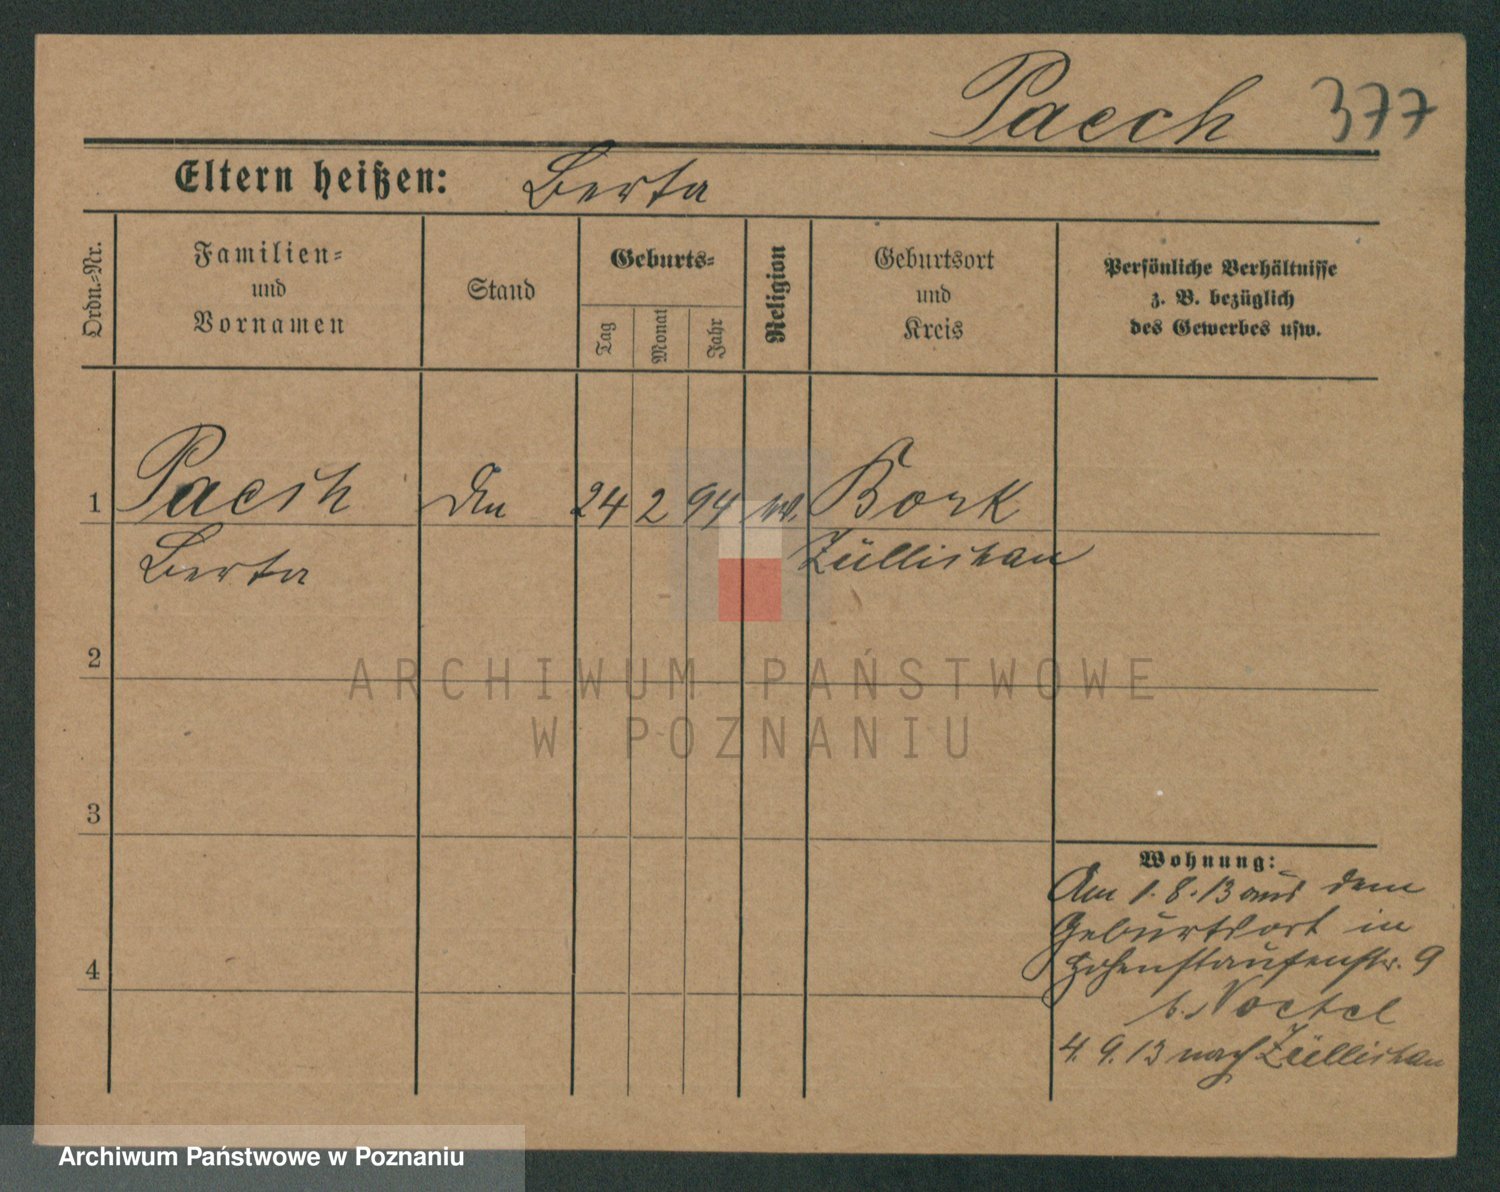 Paech 377
Eltern heißen: Berta
Ordn.-Nr.
Familien-
und
Vornamen
Stand
Geburts-
Tag
Monat
Jahr
Religion
Geburtsort
und
Kreis
Persönliche Verhältnisse
z. B. bezüglich
des Gewerbes usw.
1 Paech 24 2 94 Bork
Berta Züllichau
2
3
4
Wohnung:
Am 1.8.13 aus dem
Geburtsort in
Hohenstaufenstr. 9
b. Noetel
4.9.13 nach Züllichau
ARCHIWUM PAŃSTWOWE
W POZNANIU
Archiwum Państwowe w Poznaniu